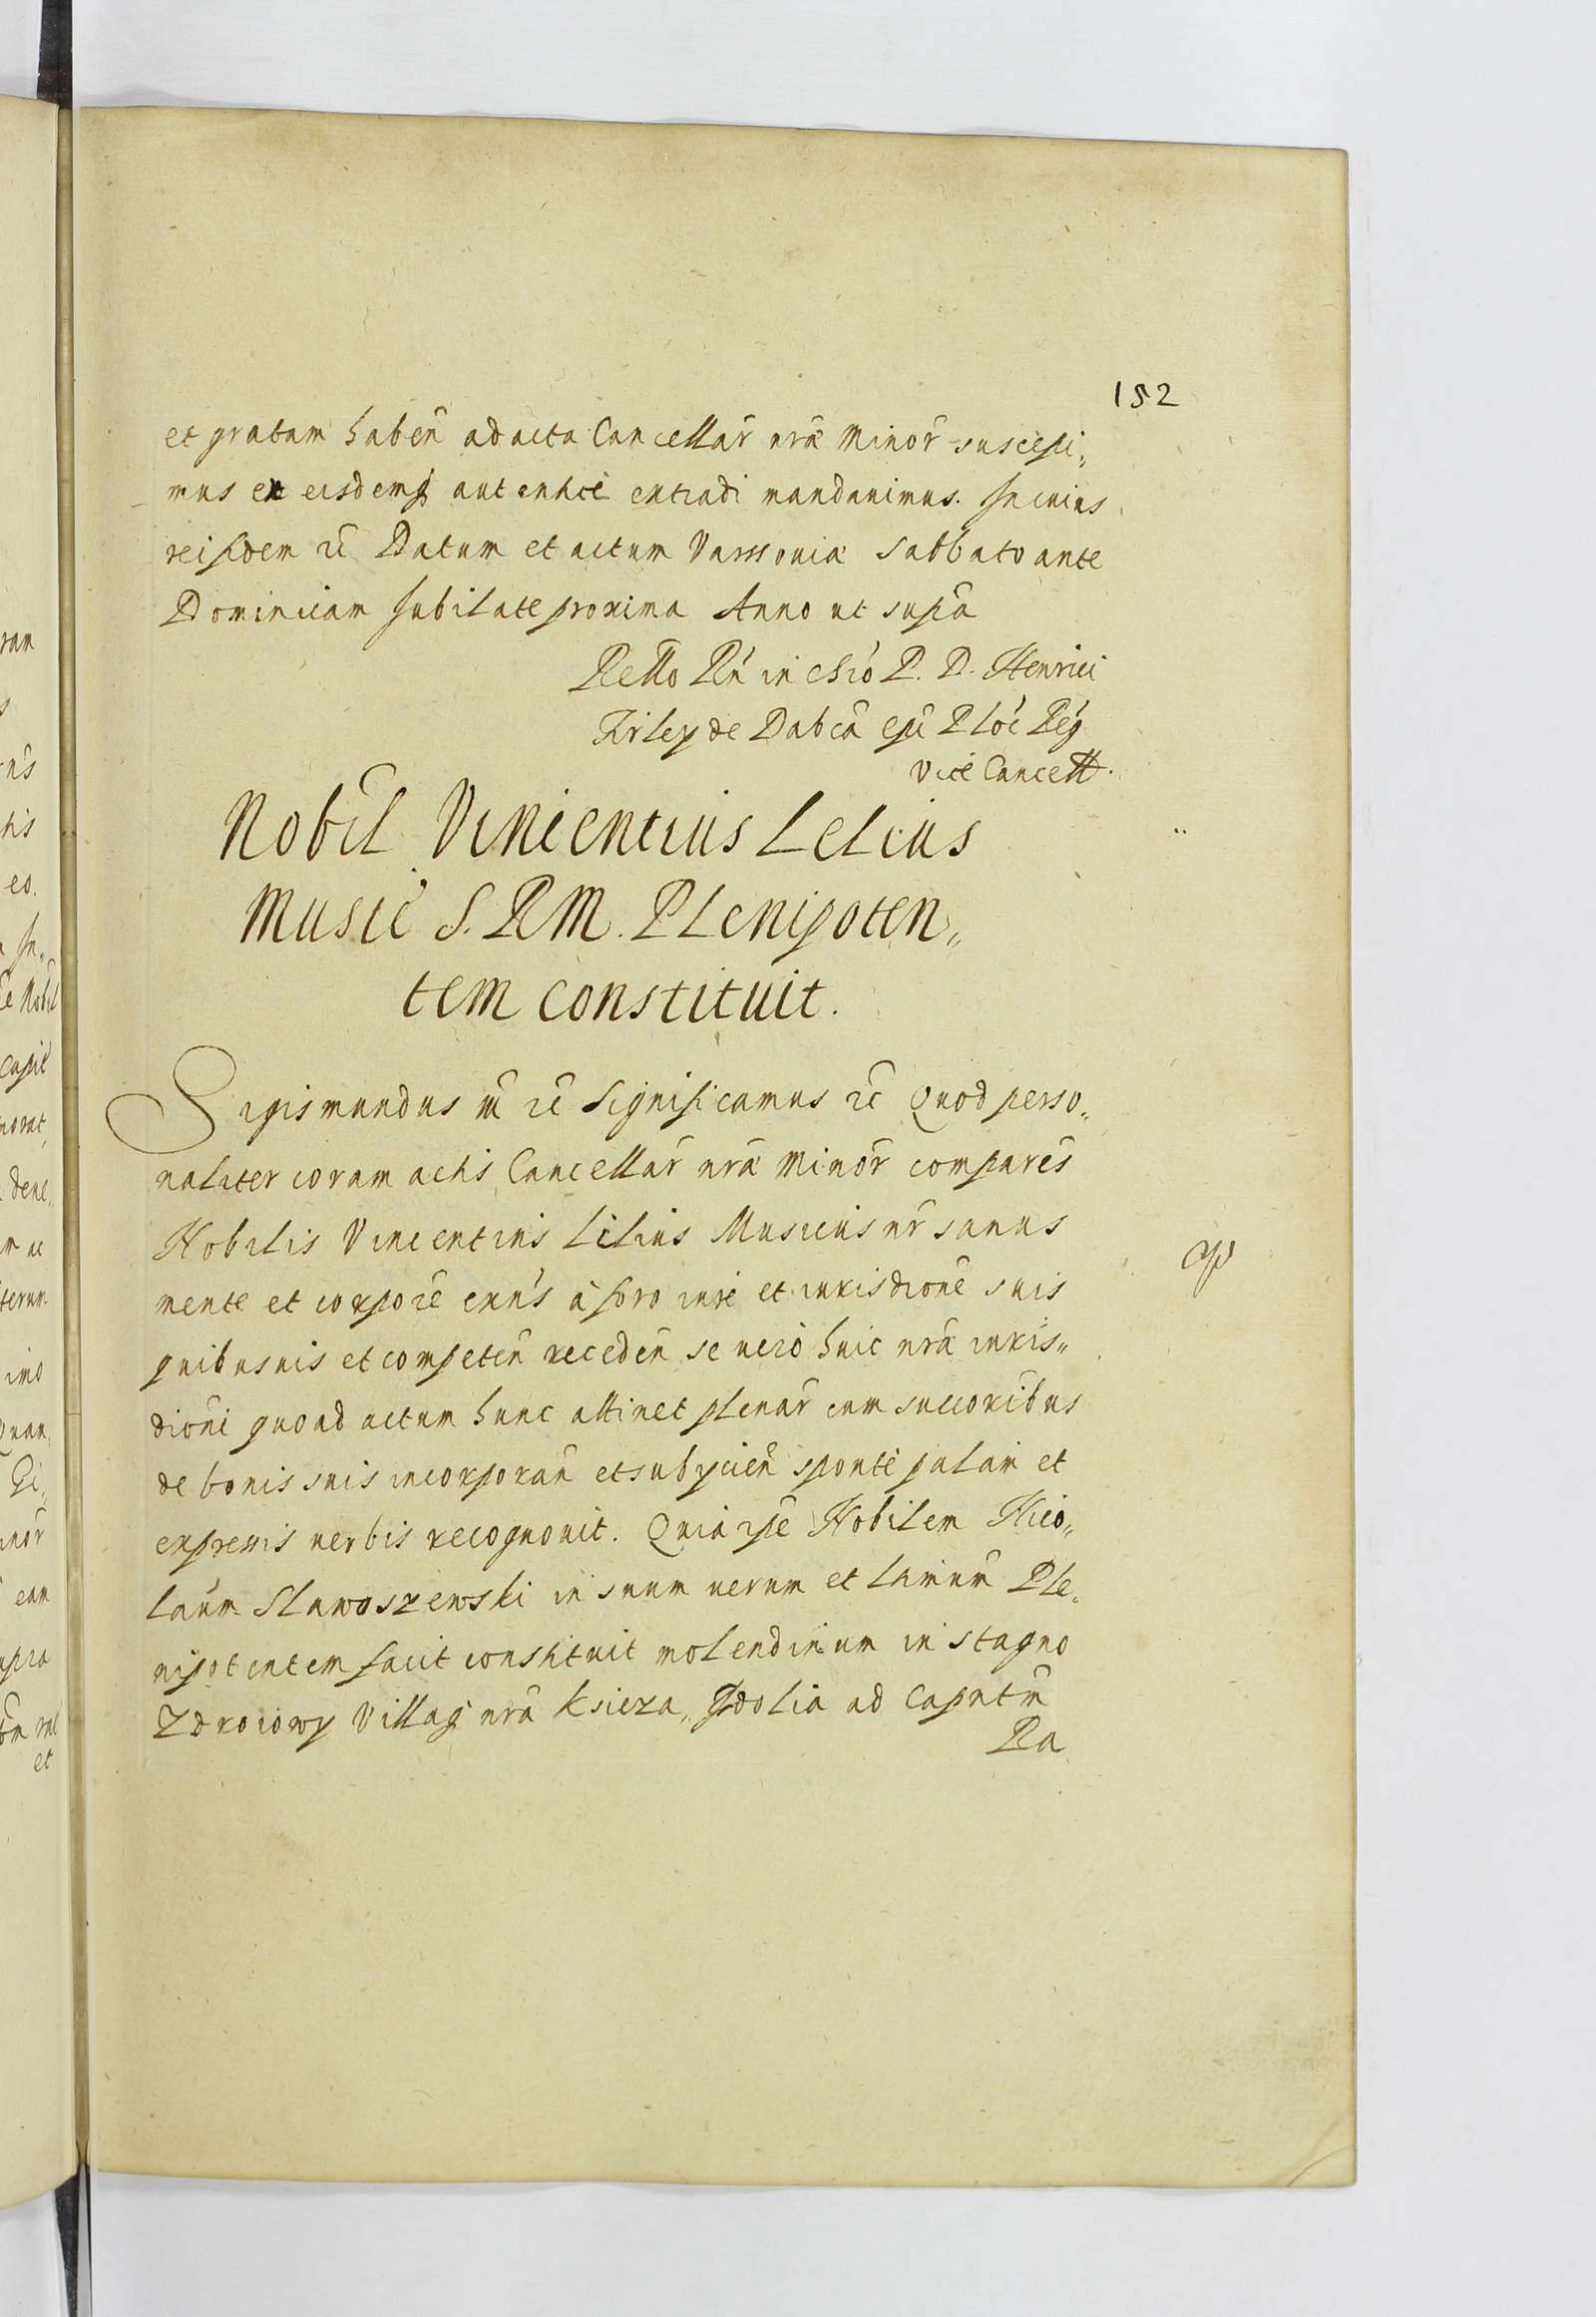 152
et gratam habeñ ad acta Cancellar̃ nrã Minor̃ suscepi„
mus ex eisdemq̃ autentice extradi mandauimus. In cuius
rei fidem rc̃ Datum et actum Varssouiæ Sabbato ante
Dominicam Iubilate proxima Anno ut supã
Rello Rń in Chró P. D. Henrici
Firley de Dabcã Epĩ Plóc Rég
Vice Cancell.
Nobil Vincentius Lelius
Music S. R M. Plenipoten„
tem constituit.
Sigismundus III rc̃ Significamus rc̃ Quod perso„
naliter coram actis Cancellar̃ nrã Minor̃ comparẽs
Nobilis Vincentius Lilius Musicus nr̃ sanus
mente et corpore exńs à foro iure et iurisdione suis
quibusuis et competeñ recedeñ se uero huic nrã iuris„
dioni quoad actum hunc attinet plenar̃ cum succoribus
de bonis suis incorporañ et subycieñ sponte palam et
expressis uerbis recognouit. Quia ipe Nobilem Nico„
laum Slawoszewski in suum uerum et ltimum Ple„
nipotentem facit constituit molendinum in stagno
Zdroiowy Villag nrã Ksieza„ Gdolia ad Capntm̃
Ra